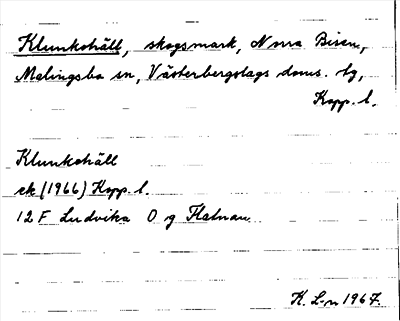 Klunkohäll, skogsmark, Norra Bisen,
Malingsbo sn, Västerbergslags doms. tg,
Kopp. l.
Klunkohäll
ek (1966) Kopp. l.
12 F Ludvika O g
K. L-n 1967.